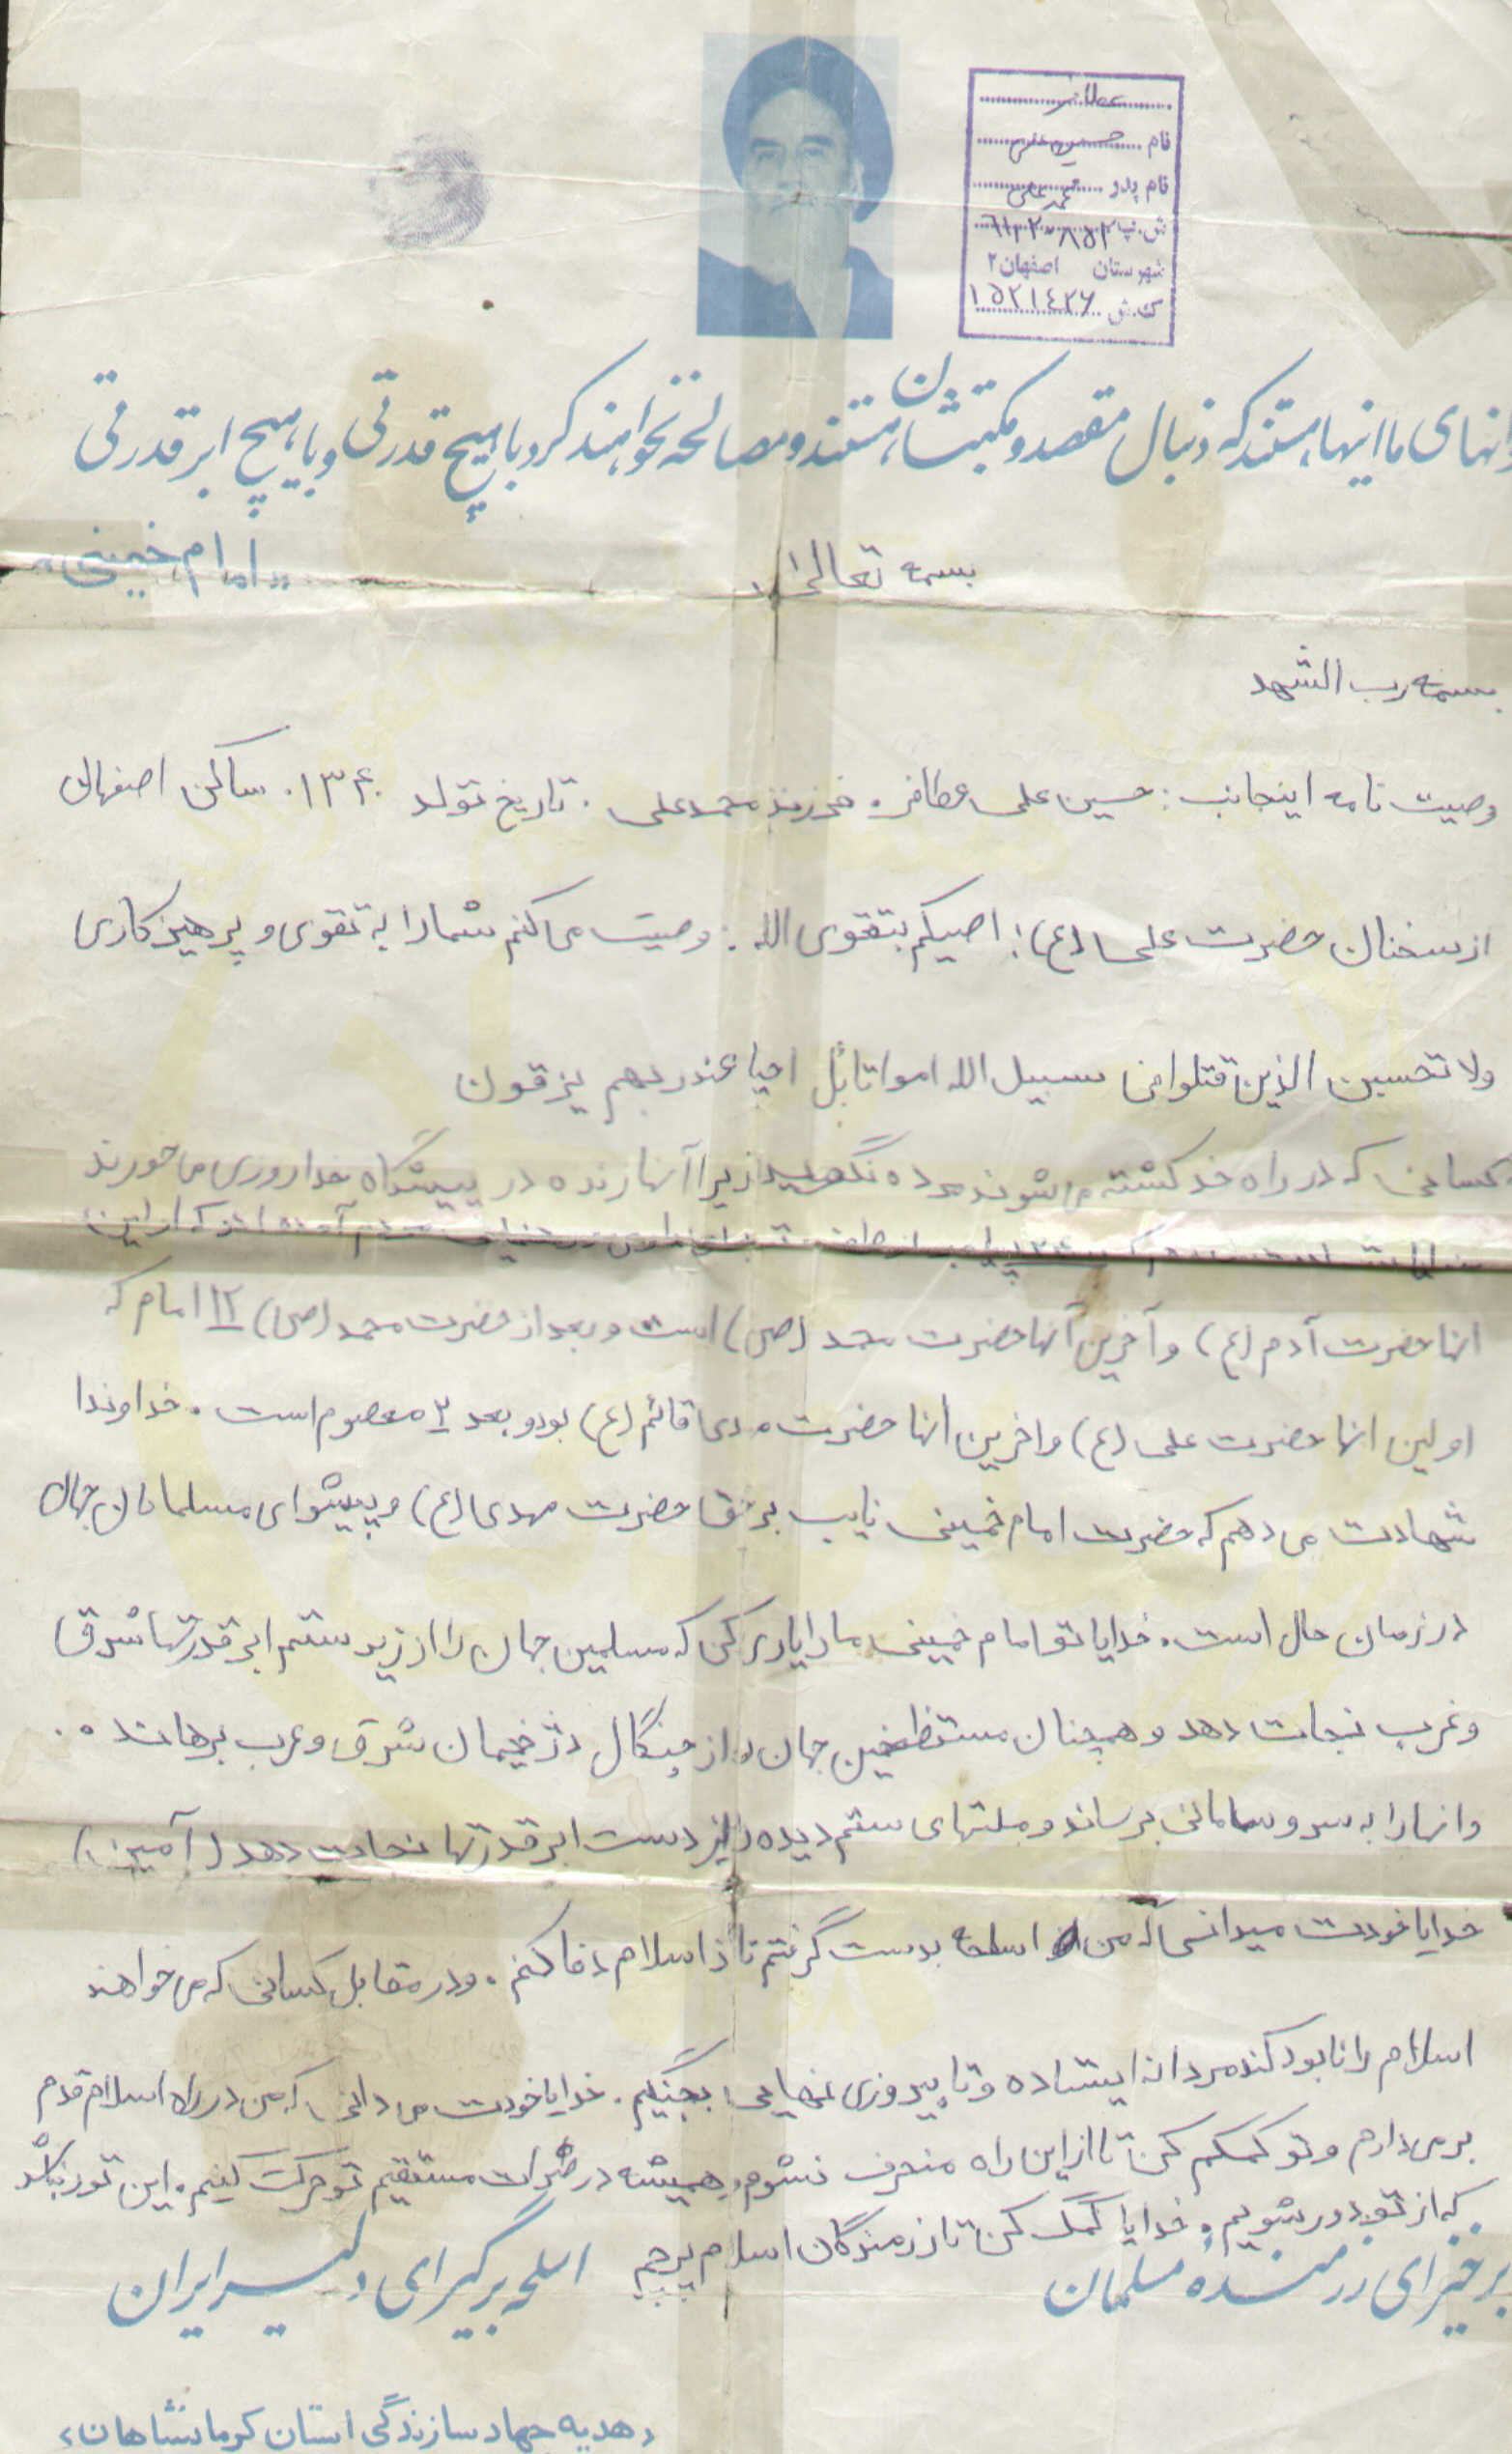 عطافر
نام حسین علی
نام پدر محمد علی
ش.پ ۶۱۲۲۰۸۵۲
شهرستان اصفهان ۲
ک.ش ۱۵۲۱۴۲۶
انهای ما اینها هستند که دنبال مقصد و مکتبشان هستند و مصالحه نخواهند کرد با هیچ قدرتی و با هیچ ابر قدرتی
«امام خمینی»
بسمه تعالی
بسمه رب الشهد
وصیت نامه اینجانب: حسین علی عطافر. فرزند محمد علی. تاریخ تولد ۱۳۴۰. ساکن اصفهان
از سخنان حضرت علی (ع): اصیکم بتقوی الله: وصیت می کنم شما را به تقوی و پرهیزکاری
ولا تحسبن الذین قتلوا فی سبیل الله امواتا بل احیا عند ربهم یزقون
کسانی که در راه خدا کشته می شوند مرده نگویید زیرا آنها زنده در پیشگاه خدا روزی می خورند
انها حضرت آدم (ع) و آخرین آنها حضرت محمد (ص) است و بعد از حضرت محمد (ص) ۱۲ امام که
اولین انها حضرت علی (ع) و اخرین انها حضرت مهدی قائم (ع) بود و بعد ۲ معصوم است. خداوندا
شهادت می دهم که حضرت امام خمینی نایب بر حق حضرت مهدی (ع) و پیشوای مسلمانان جهان
در زمان حال است. خدایا تو امام خمینی ما را یاری کن که مسلمین جهان را از زیر ستم ابر قدرتها شرق
و غرب نجات دهد و همچنان مستظعفین جهان را از چنگال دژخیمان شرق و غرب برهانده.
و انها را به سر و سامانی برساند و ملتهای ستم دیده را از دست ابر قدرتها نجات دهد (آمین)
خدایا خودت میدانی که من اسلحه بدست گرفتم تا از اسلام دفا کنم. و در مقابل کسانی که می خواهند
اسلام را نابود کند مردانه ایستاده و تا پیروزی نهایی بجنگیم. خدایا خودت می دانی که من در راه اسلام قدم
بر می دارم و تو کمکم کن تا از این راه منحرف نشوم و همیشه در صرات مستقیم تو حرکت کنیم. این تور نباشد
که از تو دور شویم. خدایا کمک کن تا رزمندگان اسلام پرچم
برخیز ای رزمنده مسلمان اسلحه برگیر ای دلیر ایران
«هدیه جهاد سازندگی استان کرمانشاهان»